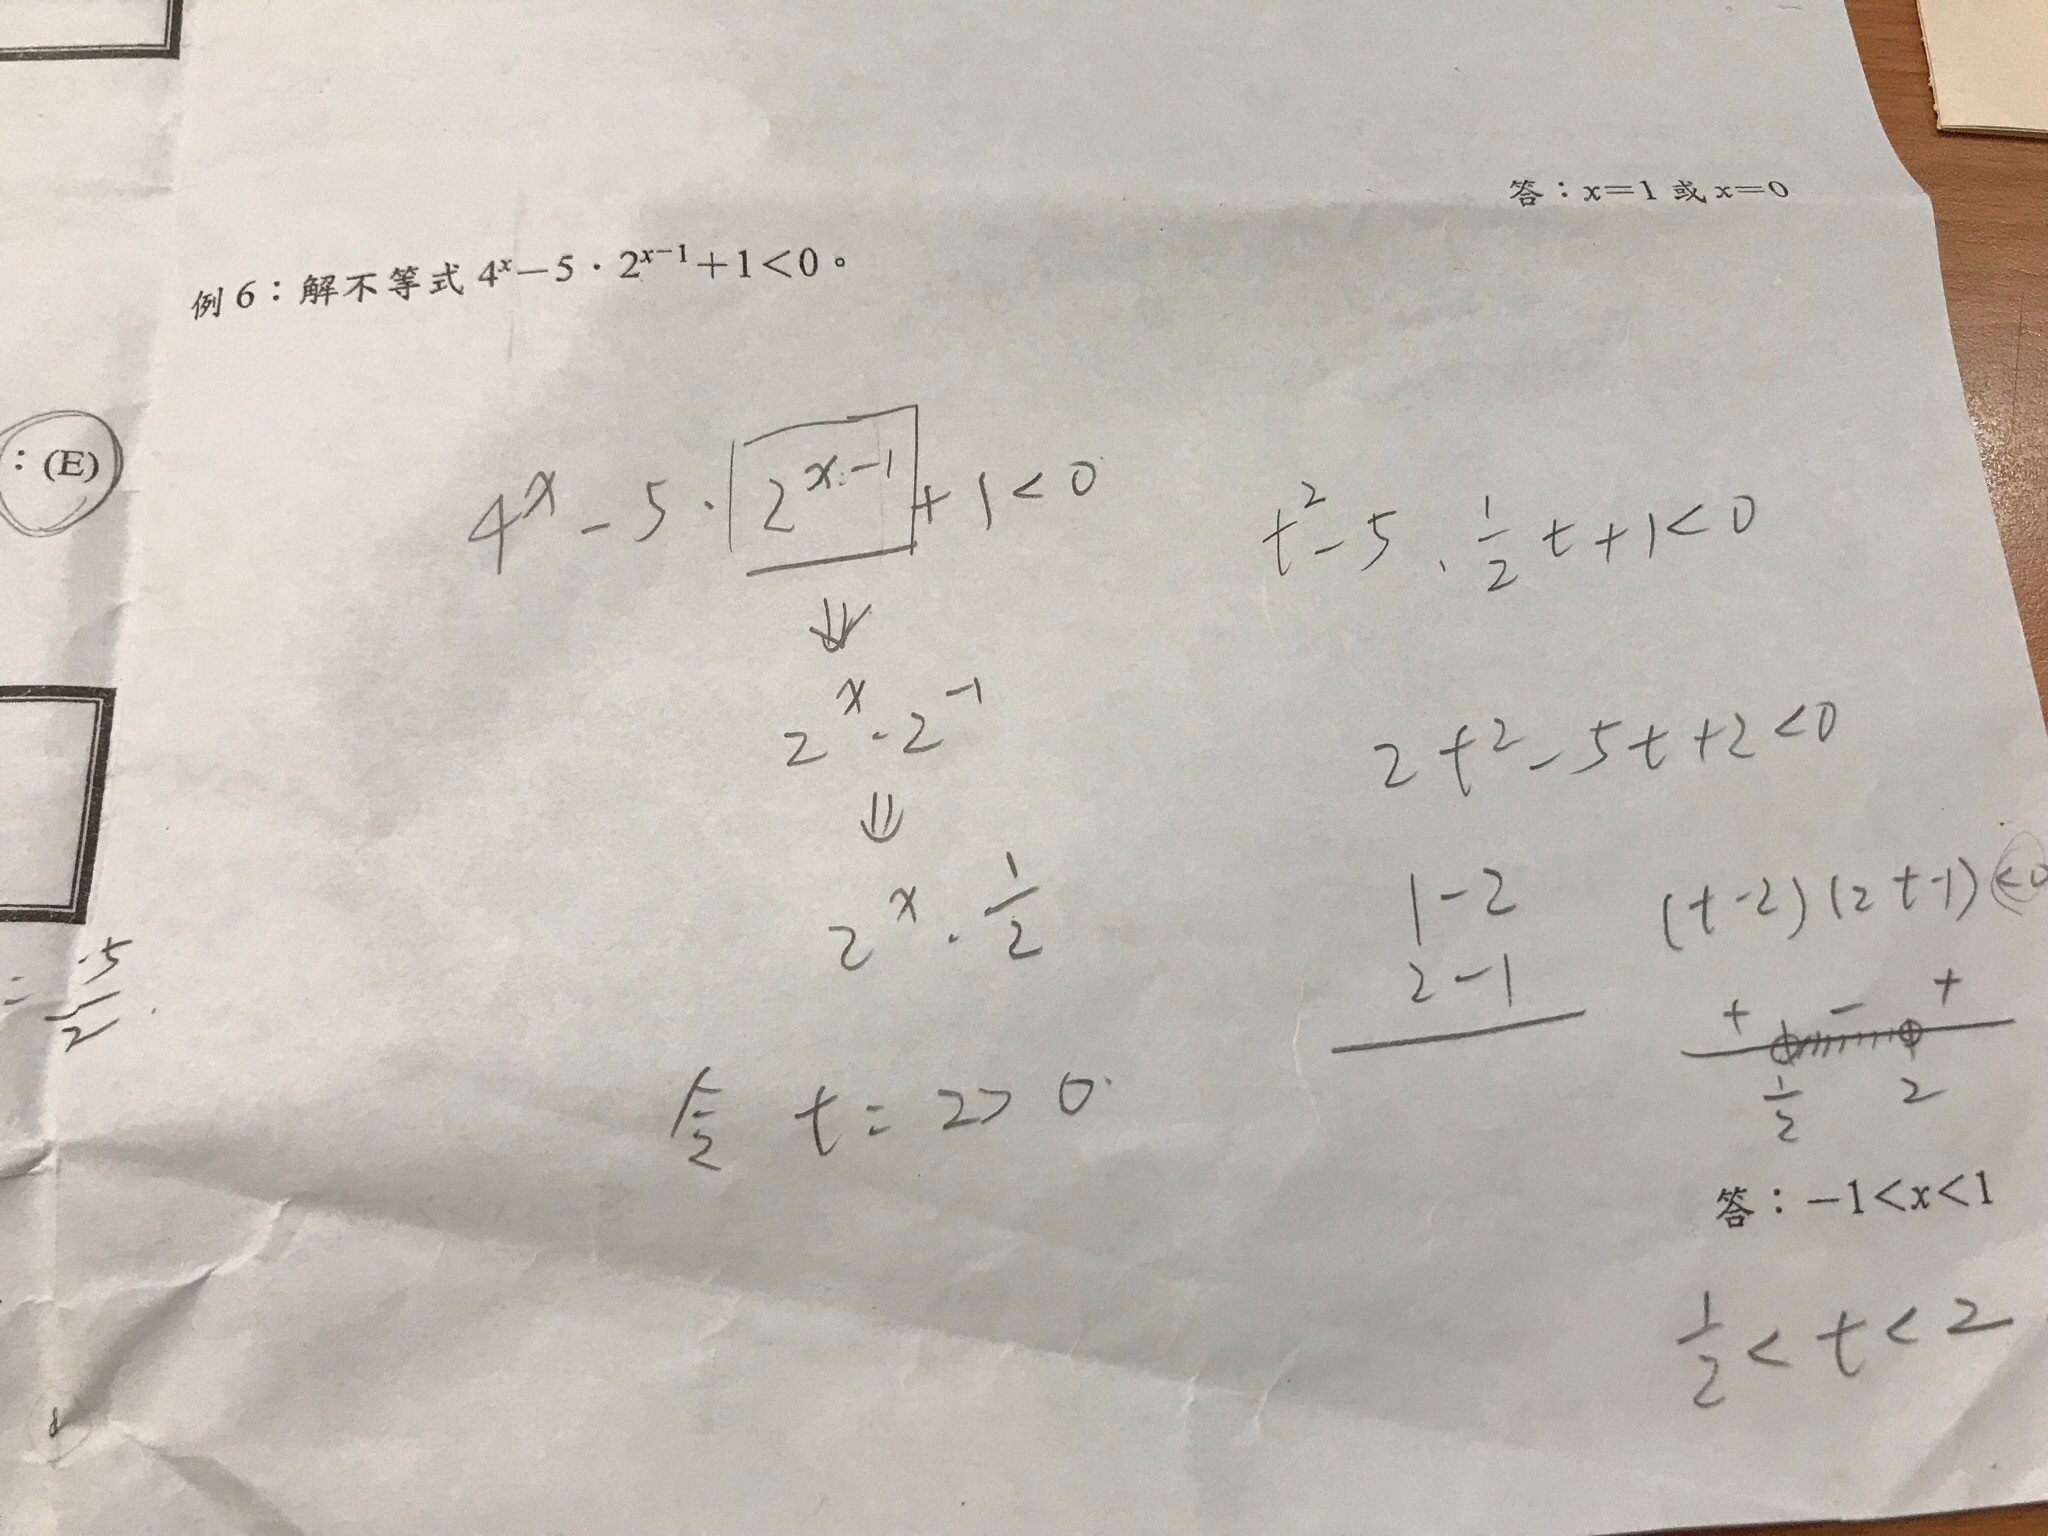 答：x=1 或 x=0
例 6：解不等式 4ˣ−5．2ˣ⁻¹+1<0。
：(E)
4ˣ - 5 · 2ˣ⁻¹ + 1 < 0
⇓
2ˣ · 2⁻¹
⇓
2ˣ · 1/2
令 t = 2 > 0
= -5/2
t² - 5 · 1/2 t + 1 < 0
2t² - 5t + 2 < 0
1 -2
2 -1
(t-2)(2t-1) <0
+ - +
1/2 2
答：−1<x<1
1/2 < t < 2